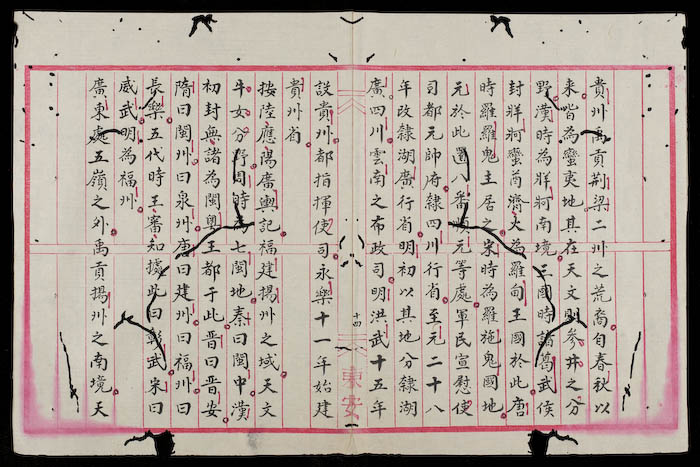 貴州禹貢荆梁二州之荒裔自春秋以
來皆為蠻夷地其在天文則參井之分
野漢時為牂牁南境三國時諸葛武侯
封牂牁蠻酋濟火為羅甸王國於此唐
時羅羅鬼主居之宋時為羅施鬼國地
元於此置八番順元等處軍民宣慰使
司都元帥府隸四川行省至元二十八
年改隸湖廣行省明初以其地分隸湖
廣四川雲南之布政司明洪武十五年
十四
東安
設貴州都指揮使司永樂十一年始建
貴州省
按陸應陽廣輿記福建揚州之域天文
牛女分野周時七閩地秦曰閩中漢
初封無諸為閩粵王都于此晉曰晉安
隋曰閩州曰泉州唐曰建州曰福州曰
長樂五代時王審知據此曰彰武宋曰
威武明為福州
廣東處五嶺之外禹貢揚州之南境天